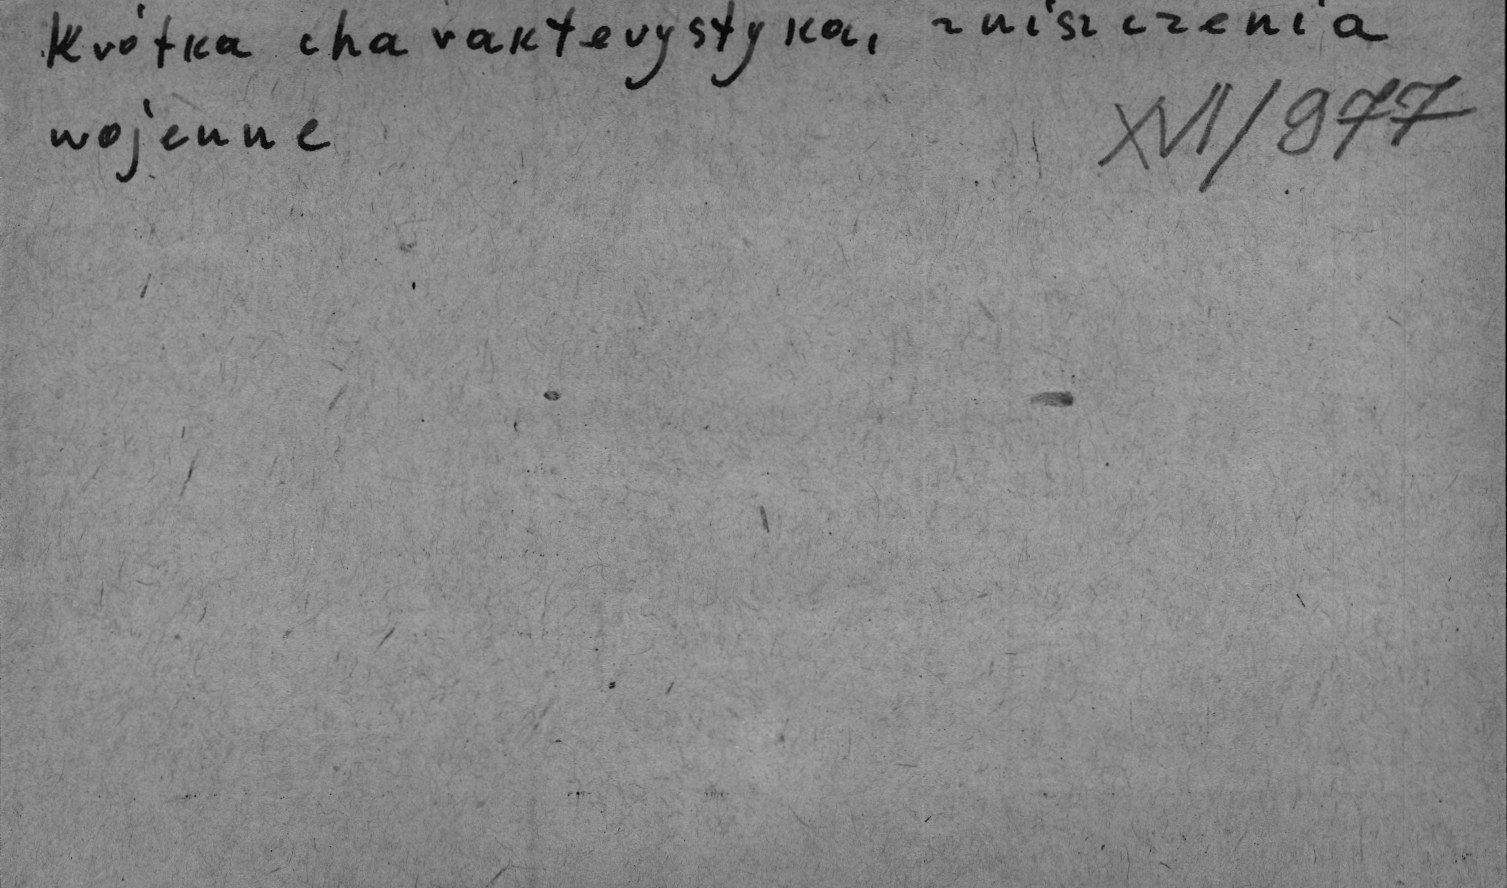 Krótka charakterystyka, zniszczenia
wojenne
XVI/977